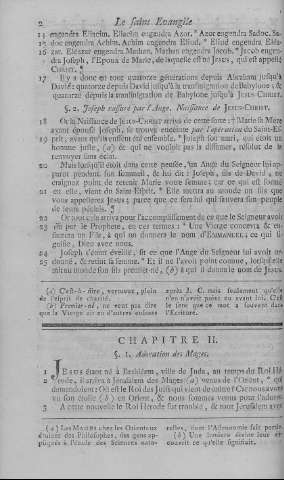 2 Le saint Evangile
14 engendra Eliacim. Eliacim engendra Azor. Azor engendra Sadoc. Sa-
15 doc engendra Achim. Achim engendra Eliud. Eliud engendra Eléa-
16 zar. Eléazar engendra Mathan. Mathan engendra Jacob. Jacob engen-
dra Joseph, l'Epoux de Marie, de laquelle est né Jesus, qui est appellé
Christ.
17 Il y a donc en tout quatorze générations depuis Abraham jusqu'à
David: quatorze depuis David jusqu'à la transmigration de Babylone; &
quatorze depuis la transmigration de Babylone jusqu'à Jesus-Christ.
§. 2. Joseph rassuré par l'Ange. Naissance de Jesus-Christ.
18 Or la Naissance de Jesus-Christ arriva de cette sorte: Marie sa Mere
ayant épousé Joseph, se trouva enceinte par l'opération du Saint-Es-
19 prit, avant qu'ils eussent été ensemble. Joseph son mari, qui
étoit juste, & qui ne vouloit pas la diffamer, résolut de la
renvoyer sans éclat.
20 Mais lorsqu'il étoit dans cette pensée, un Ange du Seigneur lui ap-
parut pendant son sommeil, & lui dit: Joseph, fils de David, ne
craignez point de retenir Marie votre femme; car ce qui est formé
21 en elle, vient du Saint-Esprit. Elle mettra au monde un fils que
vous appellerez Jesus; parce que ce sera lui qui sauvera son peuple
de leurs péchés.
22 Or tout cela arriva pour l'accomplissement de ce que le Seigneur avoit
23 dit par le Prophete, en ces termes: Une Vierge concevra & en-
fantera un Fils, à qui on donnera le nom d'Emmanuel; ce qui si-
gnifie, Dieu avec nous.
24 Joseph s'étant éveillé, fit ce que l'Ange du Seigneur lui avoit or-
25 donné, & retint sa femme. Et il ne l'avoit point connue, lorsqu'elle
mit au monde son fils premier-né, (b) à qui il donna le nom de Jesus.
(a) C'est-à-dire, vertueux, plein
de l'esprit de charité.
(b) Premier-né, ne veut pas dire
que la Vierge ait eu d'autres enfans
après J. C. mais seulement qu'elle
n'en avoit point eu avant lui. C'est
le sens que ce mot a souvent dans
l'Ecriture.
CHAPITRE II.
§. 1. Adoration des Mages.
1 Jesus étant né à Bethléem, ville de Juda, au temps du Roi Hé-
rode, il arriva à Jérusalem des Mages (a) venus de l'Orient, qui
2 demandoient: Où est le Roi des Juifs qui vient de naître? Car nous avons
vu son étoile (b) en Orient, & nous sommes venus pour l'adorer.
3 A cette nouvelle le Roi Hérode fut troublé, & tout Jerusalem avec
(a) Les Mages chez les Orientaux
étoient des Philosophes, des gens ap-
pliqués à l'étude des Sciences natu-
relles, dont l'Astronomie fait partie.
(b) Une lumiere divine leur ap-